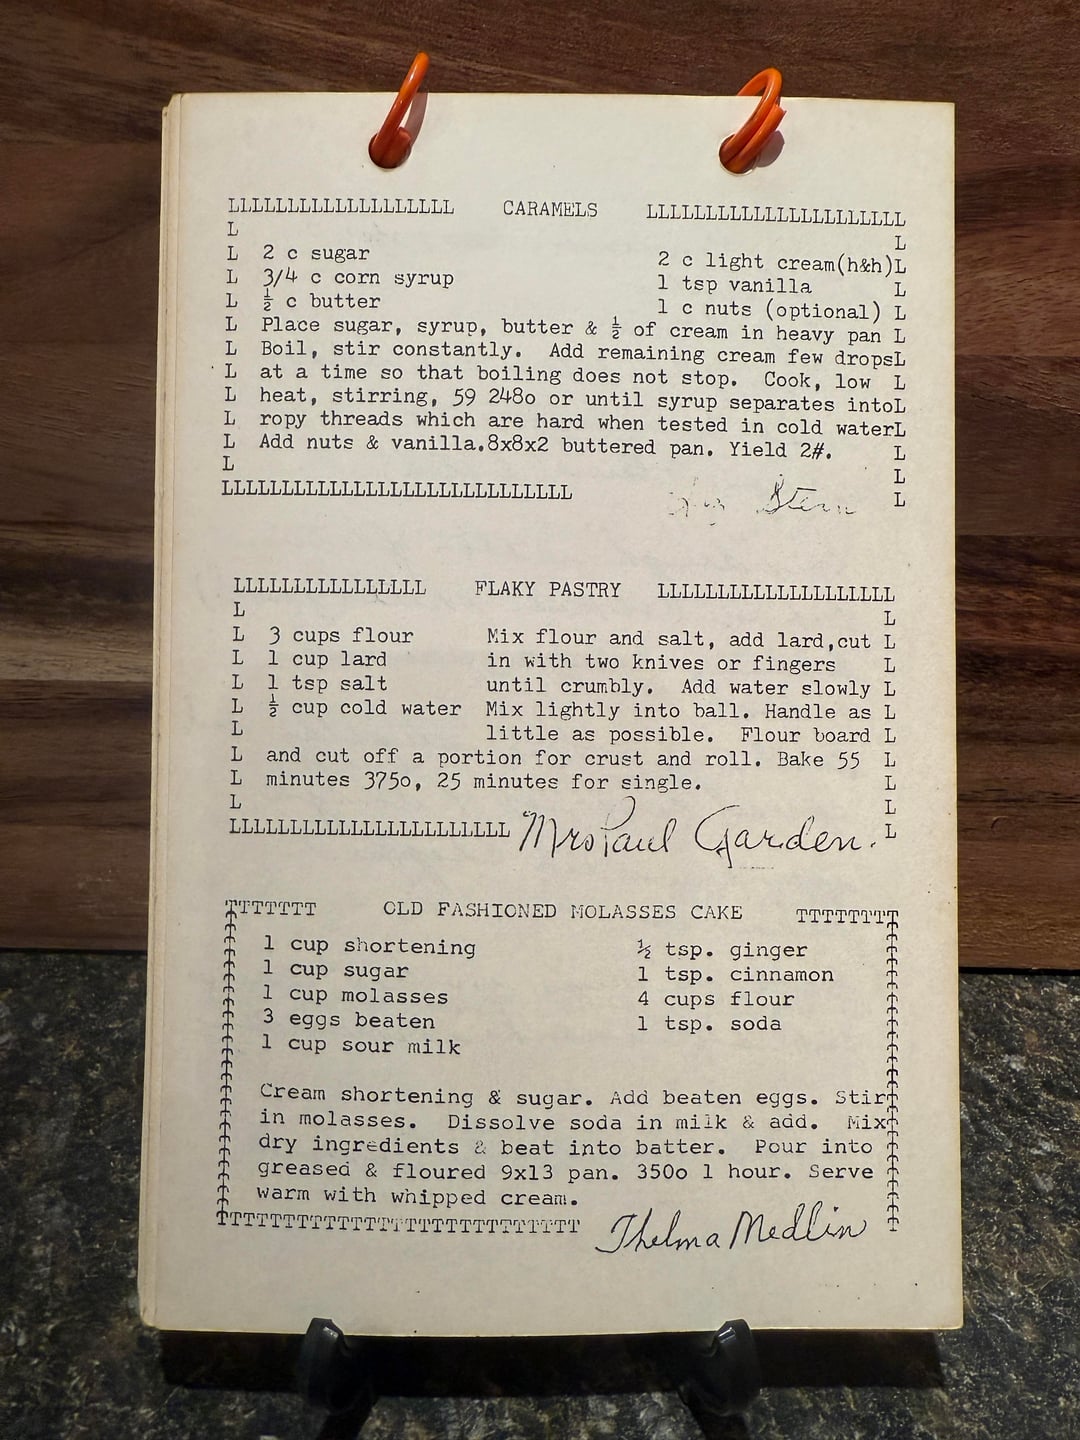 LLLLLLLLLLLLLLLLLLL CARAMELS LLLLLLLLLLLLLLLLLLLLLL
L L
L 2 c sugar 2 c light cream(h&h)L
L 3/4 c corn syrup 1 tsp vanilla L
L ½ c butter 1 c nuts (optional) L
L Place sugar, syrup, butter & ½ of cream in heavy pan L
L Boil, stir constantly. Add remaining cream few dropsL
L at a time so that boiling does not stop. Cook, low L
L heat, stirring, 59 248o or until syrup separates intoL
L ropy threads which are hard when tested in cold waterL
L Add nuts & vanilla.8x8x2 buttered pan. Yield 2#. L
L L
LLLLLLLLLLLLLLLLLLLLLLLLLLLLL Stern L
LLLLLLLLLLLLLLLL FLAKY PASTRY LLLLLLLLLLLLLLLLLLLL
L L
L 3 cups flour Mix flour and salt, add lard,cut L
L 1 cup lard in with two knives or fingers L
L 1 tsp salt until crumbly. Add water slowly L
L ½ cup cold water Mix lightly into ball. Handle as L
L little as possible. Flour board L
L and cut off a portion for crust and roll. Bake 55 L
L minutes 375o, 25 minutes for single. L
L L
LLLLLLLLLLLLLLLLLLLLLLL Mrs Paul Garden. L
TTTTTTT OLD FASHIONED MOLASSES CAKE TTTTTTTT
1 cup shortening ½ tsp. ginger
1 cup sugar 1 tsp. cinnamon
1 cup molasses 4 cups flour
3 eggs beaten 1 tsp. soda
1 cup sour milk
Cream shortening & sugar. Add beaten eggs. Stir
in molasses. Dissolve soda in milk & add. Mix
dry ingredients & beat into batter. Pour into
greased & floured 9x13 pan. 350o 1 hour. Serve
warm with whipped cream.
TTTTTTTTTTTTTTTTTTTTTTTTTTT Thelma Medlin